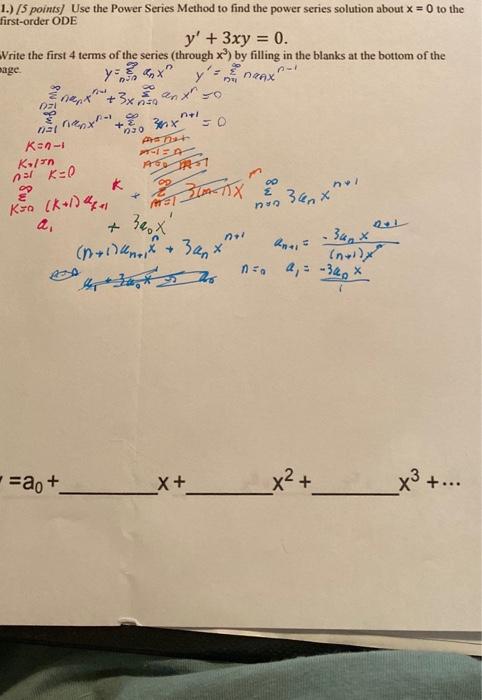 1.) [5 points] Use the Power Series Method to find the power series solution about x = 0 to the
first-order ODE
y' + 3xy = 0.
Write the first 4 terms of the series (through x³) by filling in the blanks at the bottom of the
page.
y = ∑_{n=0}^∞ aₙxⁿ y' = ∑_{n=1}^∞ naₙxⁿ⁻¹
∑_{n=1}^∞ naₙxⁿ⁻¹ + 3x ∑_{n=0}^∞ aₙxⁿ = 0
∑_{n=1}^∞ naₙxⁿ⁻¹ + ∑_{n=0}^∞ 3aₙxⁿ⁺¹ = 0
K = n-1
K+1 = n
n=1 K=0
∑_{K=0}^∞ (K+1) a_{K+1} x^K + ∑_{n=0}^∞ 3aₙxⁿ⁺¹
a₁ + 3a₀x¹
(n+1)aₙ₊₁xⁿ + 3aₙxⁿ⁺¹ aₙ₊₁ = -3aₙxⁿ⁺¹/(n+1)xⁿ
n=0 a₁ = -3a₀x/1
=a₀+________x+________x²+________x³+...